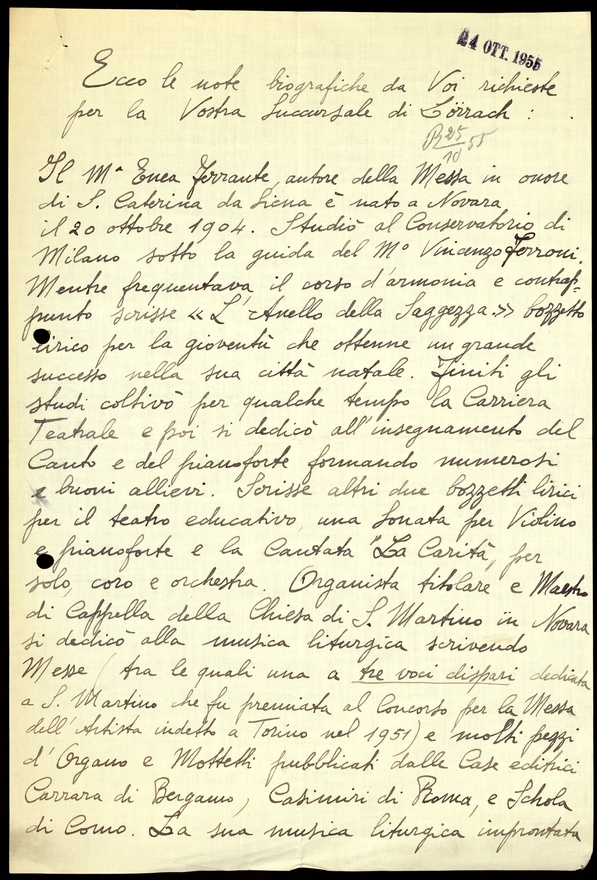 24 OTT. 1955
Ecco le note biografiche da Voi richieste
per la Vostra Succursale di Lörrach :
R 25/10 55
Il M° Enea Ferrante, autore della Messa in onore
di S. Caterina da Siena è nato a Novara
il 20 ottobre 1904. Studiò al Conservatorio di
Milano sotto la guida del M° Vincenzo Ferroni.
Mentre frequentava il corso d'armonia e contrap-
punto scrisse «L'Anello della Saggezza» bozzetto
lirico per la gioventù che ottenne un grande
successo nella sua città natale. Finiti gli
studi coltivò per qualche tempo la Carriera
Teatrale e poi si dedicò all'insegnamento del
Canto e del pianoforte formando numerosi
e buoni allievi. Scrisse altri due bozzetti lirici
per il teatro educativo, una Sonata per Violino
e pianoforte e la Cantata "La Carità, per
solo, coro e orchestra. Organista titolare e Maestro
di Cappella della Chiesa di S. Martino in Novara
si dedicò alla musica liturgica scrivendo
Messe (tra le quali una a tre voci dispari dedicata
a S. Martino che fu premiata al Concorso per la Messa
dell'Artista indetto a Torino nel 1951) e molti pezzi
d'Organo e Mottetti pubblicati dalle Case editrici
Carrara di Bergamo, Casimiri di Roma, e Schola
di Como. La sua musica liturgica improntata